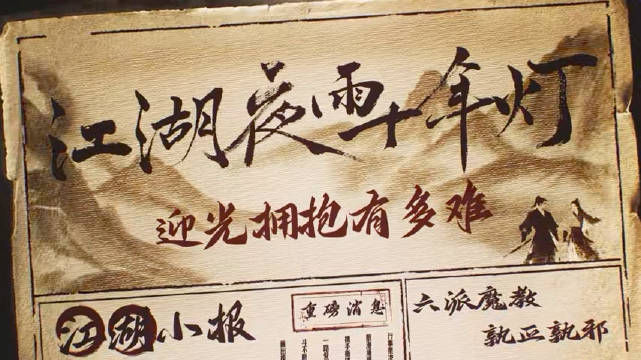 江湖夜雨十年灯
迎光拥抱有多难
江湖小报
重磅消息
六派魔教
孰正孰邪